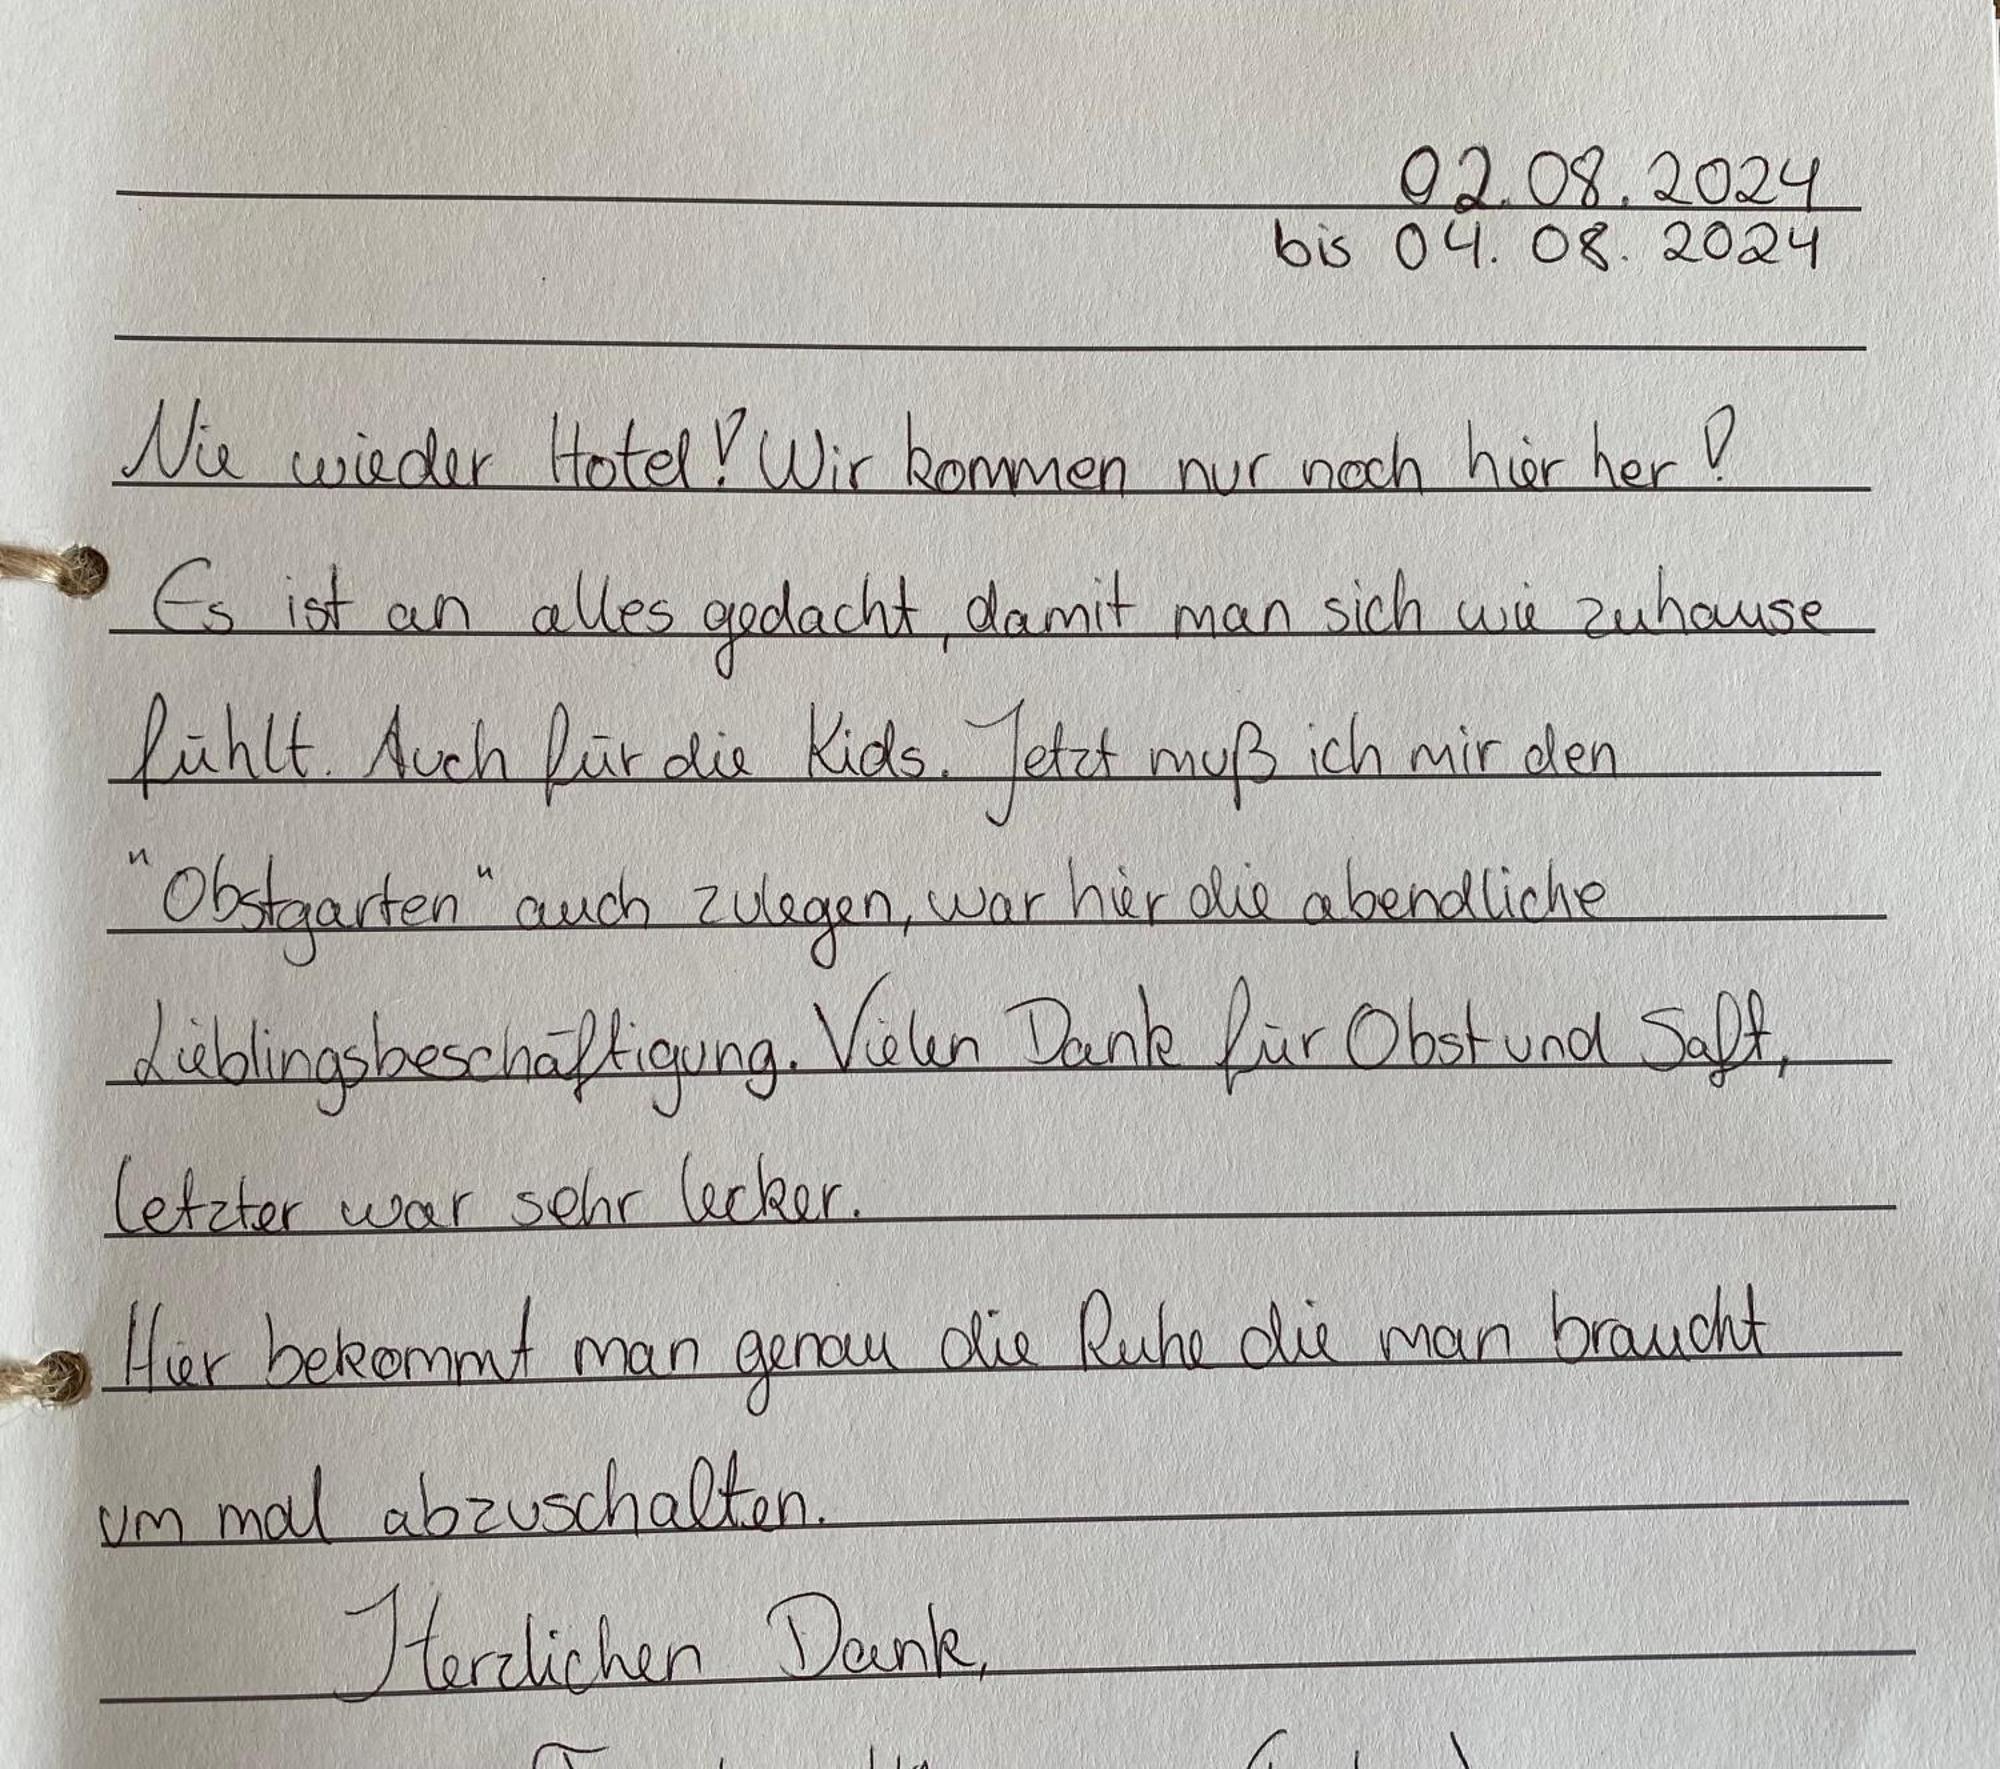 02.08.2024
bis 04.08.2024
Nie wieder Hotel! Wir kommen nur noch hier her!
Es ist an alles gedacht, damit man sich wie zuhause
fühlt. Auch für die Kids. Jetzt muß ich mir den
"Obstgarten" auch zulegen, war hier die abendliche
Lieblingsbeschäftigung. Vielen Dank für Obst und Saft,
letzter war sehr lecker.
Hier bekommt man genau die Ruhe die man braucht
um mal abzuschalten.
Herzlichen Dank,